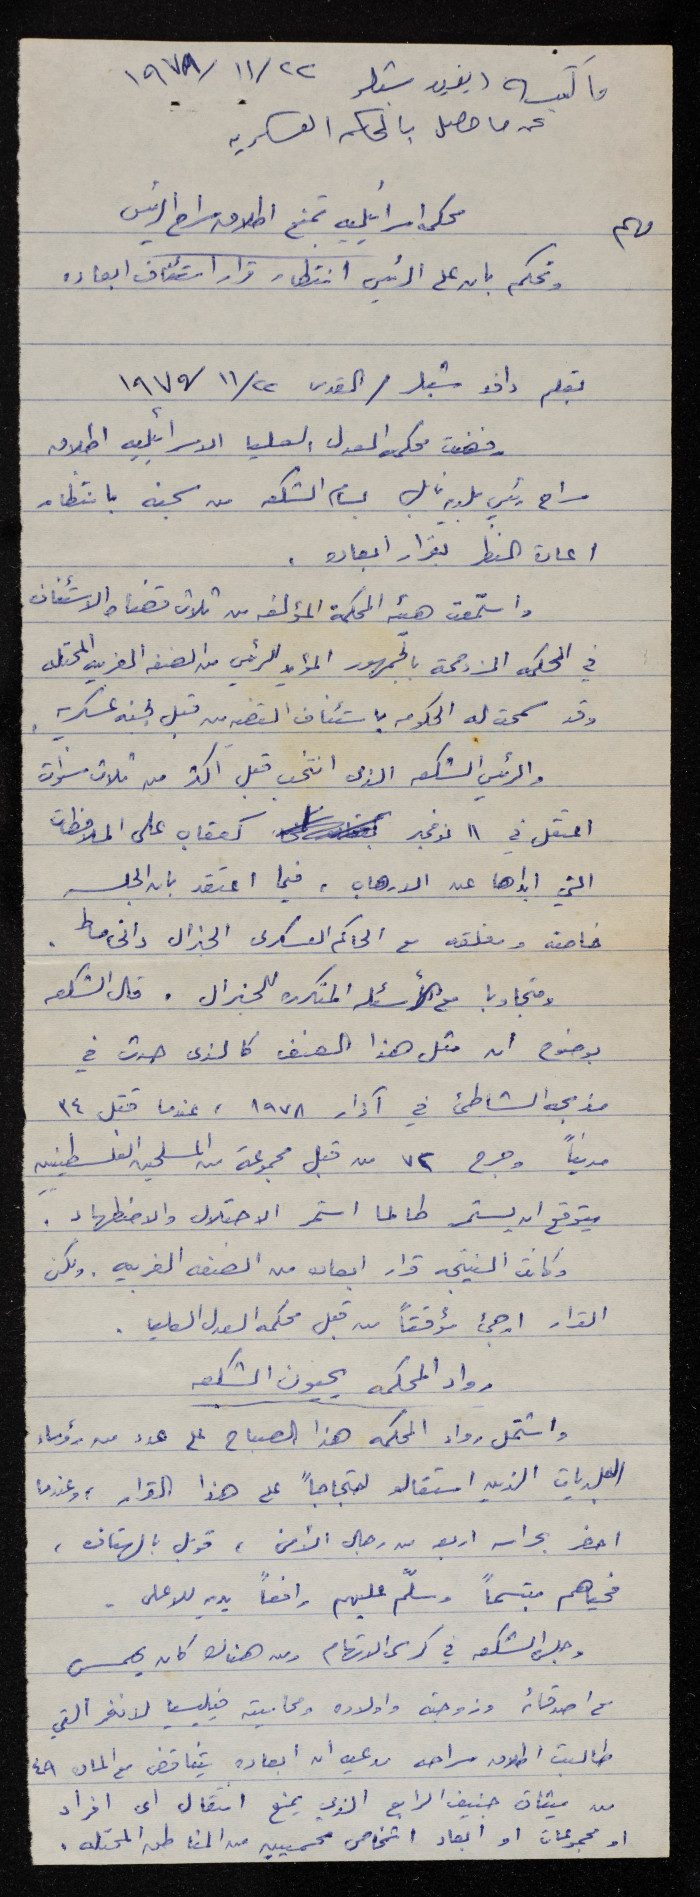 ما كتبه ديفيد شبلر ٢٢/ ١١/ ١٩٧٩
عن ما حصل بالمحاكم العسكريه
محكمه اسرائيليه تمنع اطلاق سراح الرئيس
وتحكم بان على الرئيس انتظار قرار استئناف ابعاده
بقلم دافد شبلر / القدس ٢٢/ ١١/ ١٩٧٩
رفضت محكمه العدل العليا الاسرائيليه اطلاق
سراح رئيس بلديه نابلس بسام الشكعه من سجنه بانتظار
اعادة النظر بقرار ابعاده .
واستمعت هيئه المحكمة المؤلفه من ثلاث قضاه الاستئناف
في المحكمه المزدحمة بالجمهور المؤيد للرئيس من الضفه الغربيه المحتله
وقد سمحت له الحكومه باستئناف القضيه من قبل لجنه عسكريه .
والرئيس الشكعه الذى انتخب قبل اكثر من ثلاث سنوات
اعتقل في ١١ نوفمبر كعقاب على الملاحظات
التي ابداها عن الارهاب ، فيما اعتقد بان الجلسه
خاصه ومغلقه مع الحاكم العسكرى الجنرال دانى مط .
ومتجاوبا مع الأسئله المتكرره للجنرال . قال الشكعه
بوضوح ان مثل هذا العنف كالذى حدث في
مذبحه الشاطئ في آذار ١٩٧٨ ، عندما قتل ٣٤
مدنياً وجرح ٧٢ من قبل مجموعة من المسلحين الفلسطينيين
يتوقع ان يستمر طالما استمر الاحتلال والاضطهاد .
وكانت النتيجه قرار ابعاده من الضفه الغربيه . ولكن
القرار ارجئ مؤقتاً من قبل محكمه العدل العليا .
رواد المحكمه يحيون الشكعه
واشتمل رواد المحكمه هذا الصباح على عدد من رؤساء
البلديات الذين استقالوا احتجاجاً على هذا القرار ، وعندما
احضر بحراسه اربعه من رجال الأمن ، قوبل بالهتاف ،
فحياهم مبتسماً وسلّم عليهم رافعاً يديه للاعلى .
وجلس الشكعه في كرسى الاتهام ومن هناك كان يهمس
مع اصدقائه وزوجته واولاده ومحاميته فيليسيا لانغر التي
طالبت اطلاق سراحه مدعيه ان ابعاده يتناقض مع الماده ٤٩
من ميثاق جنيف الرابع الذي يمنع انتقال اى افراد
او مجموعات او ابعاد اشخاص محميين من المناطق المحتله .